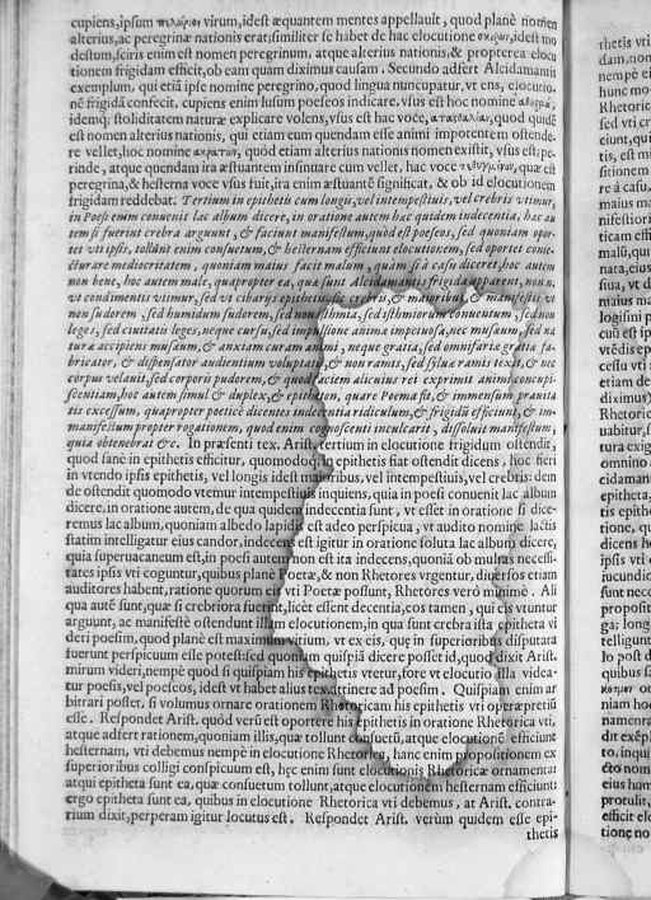 cupiens, ipsum virum, idest æquantem mentes appellauit, quod planè nomen
alterius, ac peregrinæ nationis erat; similiter se habet de hac elocutione idest mo
destum, sciris enim est nomen peregrinum, atque alterius nationis, & propterea elocu
tionem frigidam efficit, ob eam quam diximus causam. Secundo adfert Alcidamantis
exemplum, qui etiā ipse nomine peregrino, quod lingua nuncupatur, vt ens, elocutio.
nē frigidā confecit, cupiens enim lusum poeseos indicare, vsus est hoc nomine
idemq; stoliditatem naturæ explicare volens, vsus est hac voce, quod quidē
est nomen alterius nationis, qui etiam eum quendam esse animi impotentem ostende-
re vellet, hoc nomine quod etiam alterius nationis nomen existit, vsus est; pe-
rinde, atque quendam ira æstuantem insinuare cum vellet, hac voce quæ est
peregrina, & hesterna voce vsus fuit, ita enim æstuantē significat, & ob id elocutionem
frigidam reddebat. Tertium in epithetis cum longis, vel intempestiuis, vel crebris vtimur,
in Poesi enim conuenit lac album dicere, in oratione autem hæc quidem indecentia, hæc au
tem si fuerint crebra arguunt, & faciunt manifestum, quod est poeseos, sed quoniam opor-
tet vti ipsis, tollūnt enim consuetum, & hesternam efficiunt elocutionem, sed oportet conie-
cturare mediocritatem, quoniam maius facit malum, quàm si à casu diceret, hoc autem
non bene, hoc autem male, quapropter ea, quæ sunt Alcidamantis frigida apparent, non n.
vt condimentis vtimur, sed vt cibarijs epithetis, sic crebris, & maioribus, & manifestis vt
non sudorem, sed humidum sudorem, sed non Isthmia, sed isthmiorum conuentum, sed non
leges, sed ciuitatis leges, neque cursu, sed impulsione animæ impetuosa, nec musæum, sed na
turæ accipiens musæum, & anxiam curam animi, neque gratia, sed omnifariæ gratiæ fa-
bricator, & dispensator audientium voluptatis, & non ramis, sed syluæ ramis texit, & nec
corpus velauit, sed corporis pudorem, & quod faciem alicuius rei exprimit animi concupi-
scentiam, hoc autem simul & duplex, & epitheton, quare Poema fit, & immensum prauita
tis excessum, quapropter poeticè dicentes indecentia ridiculum, & frigidū efficiunt, & im-
manifestum propter rogationem, quod enim cognoscenti inculcarit, dissoluit manifestum,
quia obtenebrat &c. In præsenti tex. Arist. tertium in elocutione frigidum ostendit,
quod sanè in epithetis efficitur, quomodoq; in epithetis fiat ostendit dicens, hoc fieri
in vtendo ipsis epithetis, vel longis idest maioribus, vel intempestiuis, vel crebris: dein
de ostendit quomodo vtemur intempestiuis inquiens, quia in poesi conuenit lac album
dicere, in oratione autem, de qua quidem indecentia sunt, vt esset in oratione si dice-
remus lac album, quoniam albedo lapidis est adeo perspicua, vt audito nomine lactis
statim intelligatur eius candor, indecens est igitur in oratione soluta lac album dicere,
quia superuacaneum est, in poesi autem non est ita indecens, quoniā ob multas necessi-
tates ipsis vti coguntur, quibus planè Poetæ, & non Rhetores vrgentur, diuersos etiam
auditores habent, ratione quorum eis vti Poetæ possunt, Rhetores verò minimè. Ali
qua autē sunt, quæ si crebriora fuerint, licèt essent decentia, eos tamen, qui eis vtuntur
arguunt, ac manifestè ostendunt illam elocutionem, in qua sunt crebra ista epitheta vi
deri poesim, quod planè est maximum vitium, vt ex eis, quę in superioribus disputata
fuerunt perspicuum esse potest: sed quoniam quispiā dicere posset id, quod dixit Arist.
mirum videri, nempè quod si quispiam his epithetis vtetur, fore vt elocutio illa videa-
tur poesis, vel poeseos, idest vt habet alius tex. attinere ad poesim. Quispiam enim ar
bitrari posset, si volumus ornare orationem Rhetoricam his epithetis vti operæpretiū
esse. Respondet Arist. quòd verū est oportere his epithetis in oratione Rhetorica vti,
atque adfert rationem, quoniam illis, quæ tollunt consuetū, atque elocutionē efficiunt
hesternam, vti debemus nempè in elocutione Rhetorica, hanc enim propositionem ex
superioribus colligi conspicuum est, hęc enim sunt elocutionis Rhetoricæ ornamenta:
atqui epitheta sunt ea, quæ consuetum tollunt, atque elocutionem hesternam efficiunt:
ergo epitheta sunt ea, quibus in elocutione Rhetorica vti debemus, at Arist. contra-
rium dixit, perperam igitur locutus est. Respondet Arist. verùm quidem esse epi-
thetis